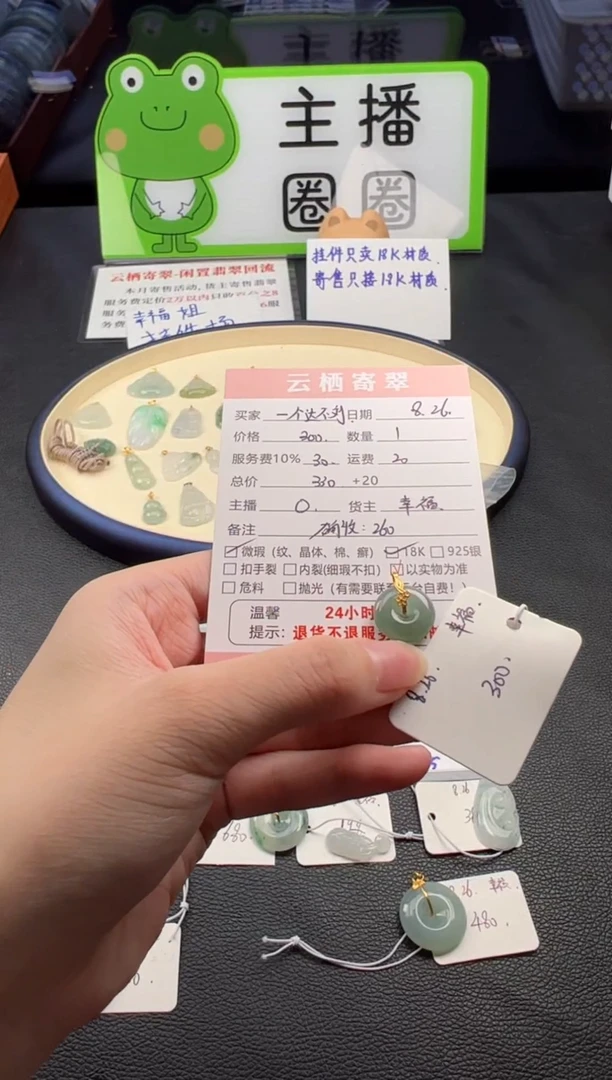 主播
圈圈
挂件只卖18K材质.
寄售只接18K材质.
云栖寄翠-闲置翡翠回流
本月寄售活动, 货主寄售翡翠
服务费定价2万以内
幸福姐
云栖寄翠
买家 一个达不刘 日期 8.26.
价格 300. 数量 1
服务费10% 30. 运费 20
总价 330 +20
主播 O. 货主 幸福.
备注 确收: 260
微瑕（纹、晶体、棉、癣） 18K 925银
扣手裂 内裂(细瑕不扣) 以实物为准
危料 抛光（有需要联系 台自费！）
温馨 24小时
提示: 退货不退服
幸福.
8.26.
300.
680.
8.26
8.26. 幸福.
480.